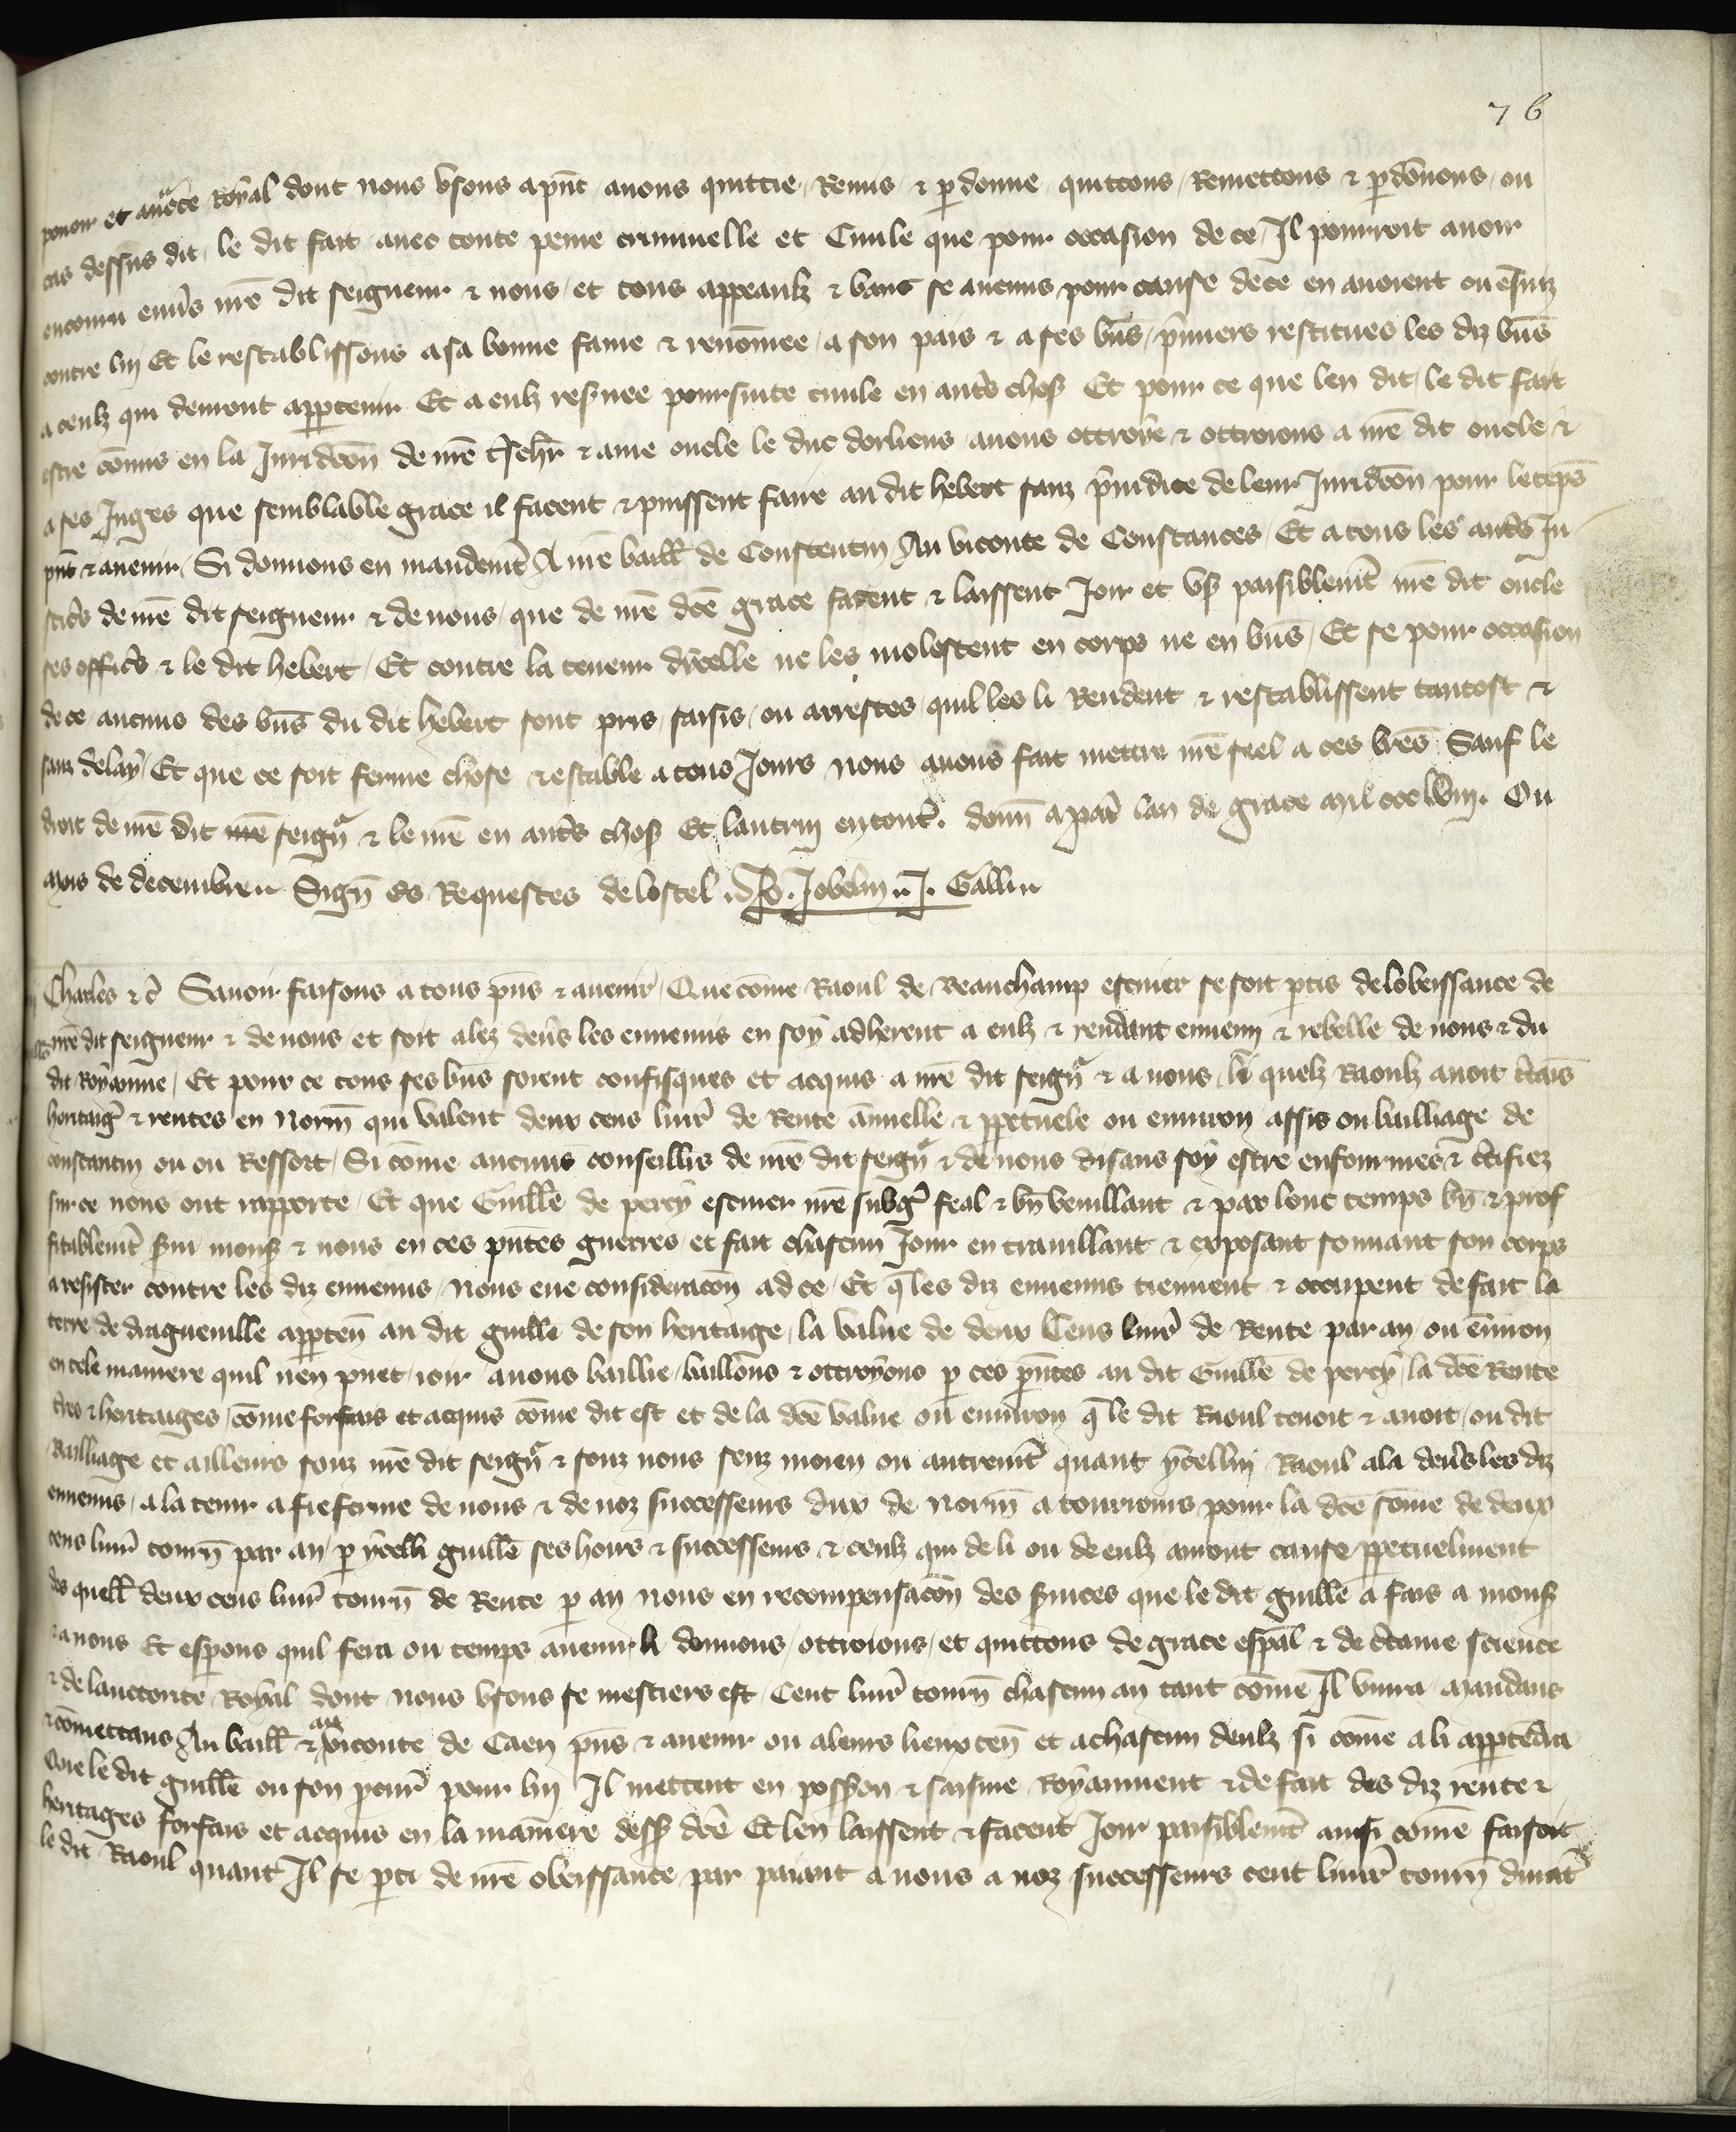 76
pouoir et auctorite Royal dont nous vsons apñt auons quittie Remis & pdonne quittons Remettons & pdōnons ou
cas dessus dit le dit fait auec toute peine criminelle et Ciuile que pour occasion de ce Il pourroit auoir
encouru enuѕ nrē dit seigneur & nous et tous appeaulx & bans se aucuns pour cause dece en auoient
contre luy Et le restablissons asa bonne fame & renōmee a son pais & a ses biēs p̄miers restitues les diz biēs
a ceulx qui deuront appartenir Et a eulx resuee poursuite ciuile en autrs choses Et pour ce que len dit le dit fait
estre cōmis en la Juridicōn de nrē tcher & ame oncle le duc dorliens auons ottroye & ottroions a nrē dit oncle &
a ses Juges que semblable grace il facent & puissent faire au dit hebert sanz p̄iudice de leur Juridicōn pour le tēps
pñt & auenir Si donnons en mandemt A nrē baill de Constentin Au viconte de Constances Et a tous les autrs Ju
sticrs de nrē dit seigneur & de nous que de nrē dcē grace facent & laissent Joir et vser paisiblemt nrē dit oncle
ses officrs & le dit hebert Et contre la teneur dicelle ne les molestent en corps ne en biēs Et se pour occasion
de ce aucuns des biēs du dit hebert sont pris saisis ou arrestes quil les li Rendent & restablissent tantost &
sanz delay Et que ce soit ferme chose & estable a tous Jours nous auons fait mettre nrē seel a ces lrēs Sauf le
droit de nrē dit seign̄r & le nrē en autrs choses Et lautruy en tout. donn̄ a par̄ lan de grace mil ccc lviij. Ou
mois de decembre Sign̄ es Requestes de lostel Jobelin J. Gallu
Charles &c̄ Sauoir faisons a tous p̄ns & auenir Que cōme Raoul de Beauchamp escuier se soit ptis de lobeissance de
nrē dit seigneur & de nous et soit alez deuѕ les ennemis en soy adherent a eulx & rendant ennemi & rebelle de nous & du
dit Royaume Et pour ce tous ses biēs soient confisques et acquis a nrē dit seign̄r & a nous le quelx Raoulx auoit ctains
heritaigs & rentes en Norm̄ qui valent deux cens liurs de Rente annuelle & ppetuele ou enuiron assis ou bailliage de
constantin ou ou Ressort Si cōme aucuns conseilliers de nrē dit seign̄r & de nous disans soy estre enfourmes & ctifiez
sur ce nous ont rapporte Et que Guillē de percy escuier nrē subget feal & biē veuillant & par lonc temps biē & prof
fitablemt sui monsr & nous en ces p̄ntes guerres et fait chascun Jour en trauillant & exposant souuant son corps
a resister contre les diz ennemis Nous eue consideracōn ad ce Et q̄ les diz ennemis tiennent & occupent de fait la
terre de dragueuille apptēn au dit guillē de son heritaige la value de deux Cens liurs de Rente par an ou ēuiron
en tele maniere quil nen puet ioir auons baillie baillons & ottroyons p ces p̄ntes au dit Guillē de percy la dcē Rente
trēs & heritaiges cōme forfais et acquis cōme dit est et de la dcē value ou enuiron q̄ le dit Raoul tenoit & auoit ou dit
Bailliage et ailleurs souz nrē dit seign̄r & souz nous senz moien ou autremt quant ycelluy Raoul ala deuѕ les diz
ennemis a la tenir a fieferme de nous & de noz successeurs dux de Norm̄ a tourioins pour la dcē sōme de deux
cens liurs tourn̄ par an p ycelli guillē ses hoirs & successeurs & ceulx qui de li ou de eulx auront cause ppetuelment
des quell deux cens liurs tourn̄ de Rente p an nous en recompensacōn des seruices que le dit guillē a fais a monsr
& a nous Et esperons quil fera ou temps auenir li donnons ottroions et quittons de grace esp̄al & de ctaine science
& de lauctorite Royal dont nous vsons se mestiers est Cent liurs tourn̄ chascun an tant cōme Il viura Mandans
& cōmettans Au baill & au viconte de Caen p̄ns & auenir ou aleurs lieuxten̄ et a chascun deulx si cōme a li appartēdra
Que le dit guillē ou son pcur̄ pour luy Il mettent en possēon & saisine Royaument & de fait des diz rente &
heritages forfais et acquis en la maniere dessus dcē Et len laissent & facent Joir paisiblemt ausi cōme faisoit
le dit Raoul quant Il se pti de nrē obeissance par paiant a nous a noz successeurs cent liurs tourn̄ durāt